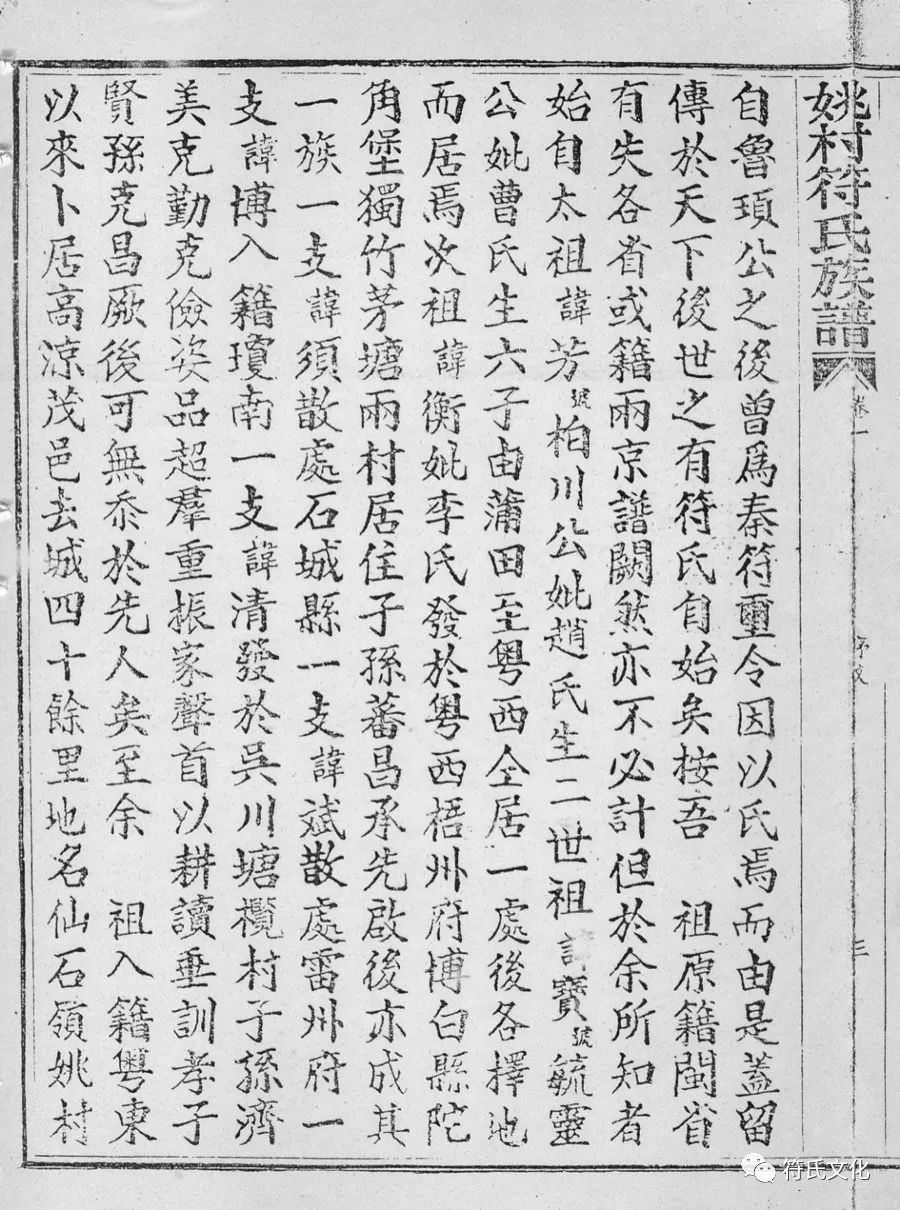 姚村符氏族譜 卷一 三
自魯頃公之後曾爲秦符璽令因以氏焉而由是蓋留
傳於天下後世之有符氏自始矣按吾 祖原籍閩省
有失各省或籍兩京譜闕然亦不必計但於余所知者
始自太祖諱芳號柏川公妣趙氏生二世祖諱寶號毓靈
公妣曹氏生六子由蒲田至粵西仝居一處後各擇地
而居焉次祖諱衡妣李氏發於粵西梧州府博白縣陀
角堡獨竹茅塘兩村居住子孫蕃昌承先啟後亦成其
一族一支諱須散處石城縣一支諱斌散處雷州府一
支諱博入籍瓊南一支諱清發於吳川塘欖村子孫濟
美克勤克儉姿品超羣重振家聲首以耕讀垂訓孝子
賢孫克昌厥後可無忝於先人矣至余 祖入籍粵東
以來卜居高涼茂邑去城四十餘里地名仙石嶺姚村
符氏文化